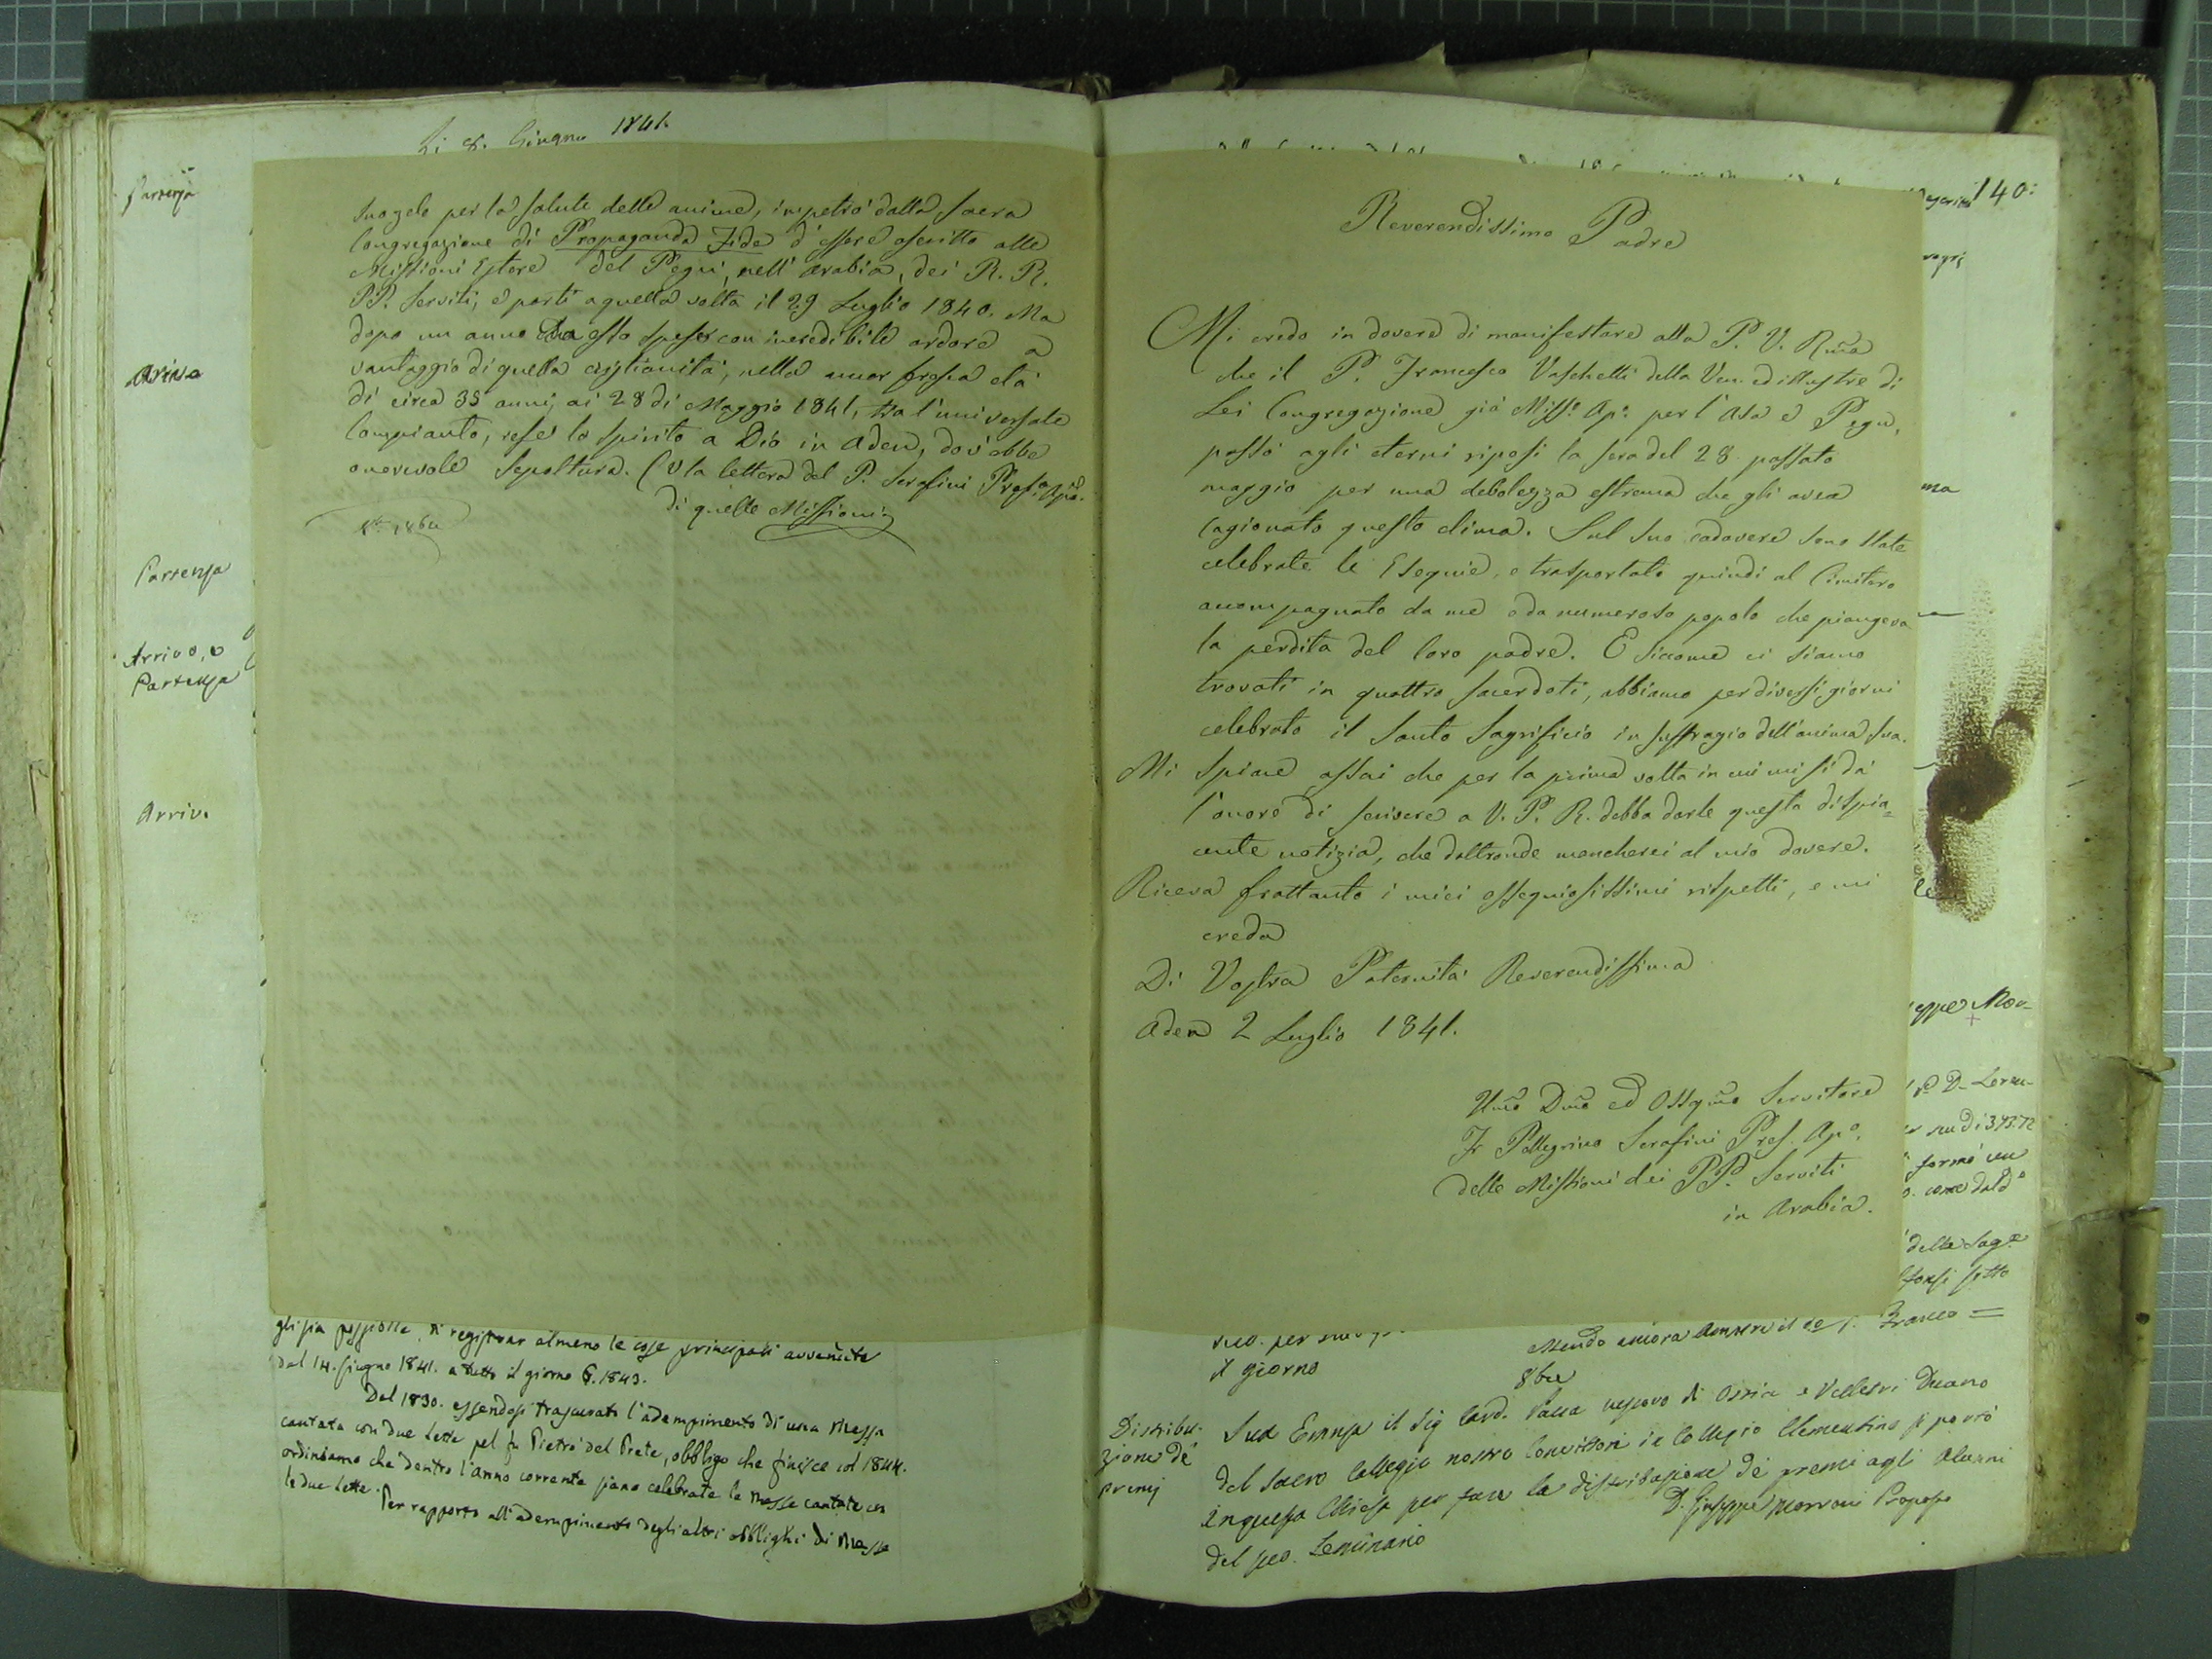 Li 8. Giugno 1841.
Partenza
Arrivo
Partenza
Arrivo, e
Partenza
Arrivo
suo zelo per la salute delle anime, impetrò dalla sacra
Congregazione di Propaganda Fide d'essere ascritto alle
Missioni Estere del Pegù, nell'Arabia, dei R. R.
PP. Serviti, e partì a quella volta il 29 Luglio 1840. Ma
dopo un anno da esso speso con incredibile ardore a
vantaggio di quella cristianità, nella ancor fresca età
di circa 35 anni, ai 28 di Maggio 1841, tra l'universale
Compianto, rese lo spirito a Dio in Aden, dov'ebbe
onorevole sepoltura. (V la lettera del P. Serafini Pref. Apo.
di quelle Missioni
gli sia possibile, di registrar almeno le cose principali avvenute
dal 14. Giugno 1841. a tutto il giorno 6. 1843.
Dal 1830. essendosi trascurato l'adempimento di una Messa
cantata con due lette pel fu Pietro del Prete, obbligo che finisce col 1844.
ordiniamo che dentro l'anno corrente siano celebrate le Messe cantate con
le due lette.
Per rapporto all'adempimento degli altri obblighi di Messe
140:
Reverendissimo Padre
Mi credo in dovere di manifestare alla P. V. Rma
che il P. Francesco Vaschetti della Ven. ed illustre di
Lei Congregazione già Miss. Ap. per l'Ava e Pegù,
passò agli eterni riposi la sera del 28 passato
maggio per una debolezza estrema che gli avea
cagionato questo clima. Sul suo cadavere sono state
celebrate le Esequie, e trasportato quindi al Cimitero
accompagnato da me e da numeroso popolo che piangeva
la perdita del loro padre. E siccome ci siamo
trovati in quattro sacerdoti, abbiamo per diversi giorni
celebrato il Santo Sagrificio in suffragio dell'anima sua.
Mi spiace assai che per la prima volta in cui mi si dà
l'onore di scrivere a V. P. R. debba darle questa dispia=
cente notizia, che d'altronde mancherei al mio dovere.
Riceva frattanto i miei ossequiosissimi rispetti, e mi
creda
Di Vostra Paternità Reverendissima
Aden 2 Luglio 1841.
Umo Dmo ed Ossqmo Servitore
Fr Pellegrino Serafini Pref. Apo.
delle Missioni dei PP. Serviti
in Arabia.
il giorno
8bre
Distribu-
zione de'
premj
Sua Emnza il Sig Card. Pacca vescovo di Ostia e Velletri Decano
del sacro Collegio nostro Convittore in Collegio Clementino si portò
in questa Chiesa per fare la distribuzione de' premi agli Alunni
del Seminario
D. Giuseppe Morroni Preposto